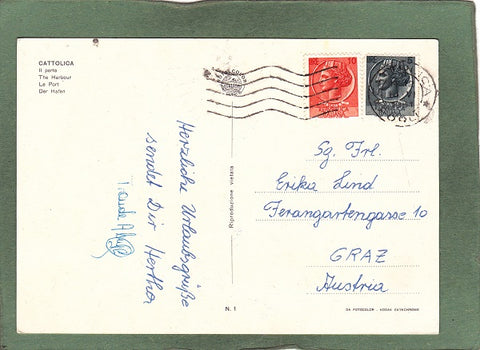 CATTOLICA
Il porto
The Harbour
Le Port
Der Hafen
Herzliche Urlaubsgrüße
sendet Dir Hertha
Riproduzione vietata
N. 1
10
Sg. Frl.
Erika Lind
Ferangartengasse 10
GRAZ
Austria